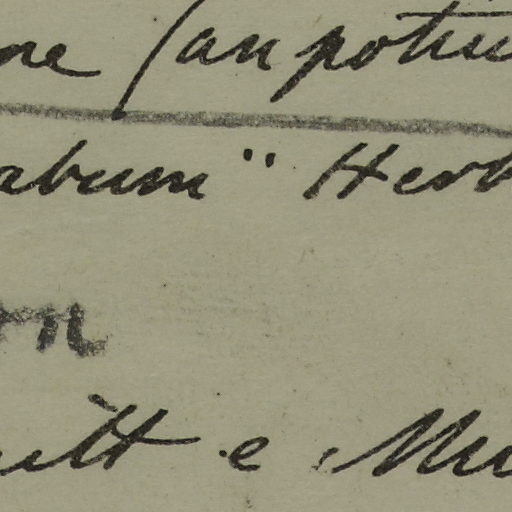 ne (an potiu
abum" Herb
on
itt e Mu